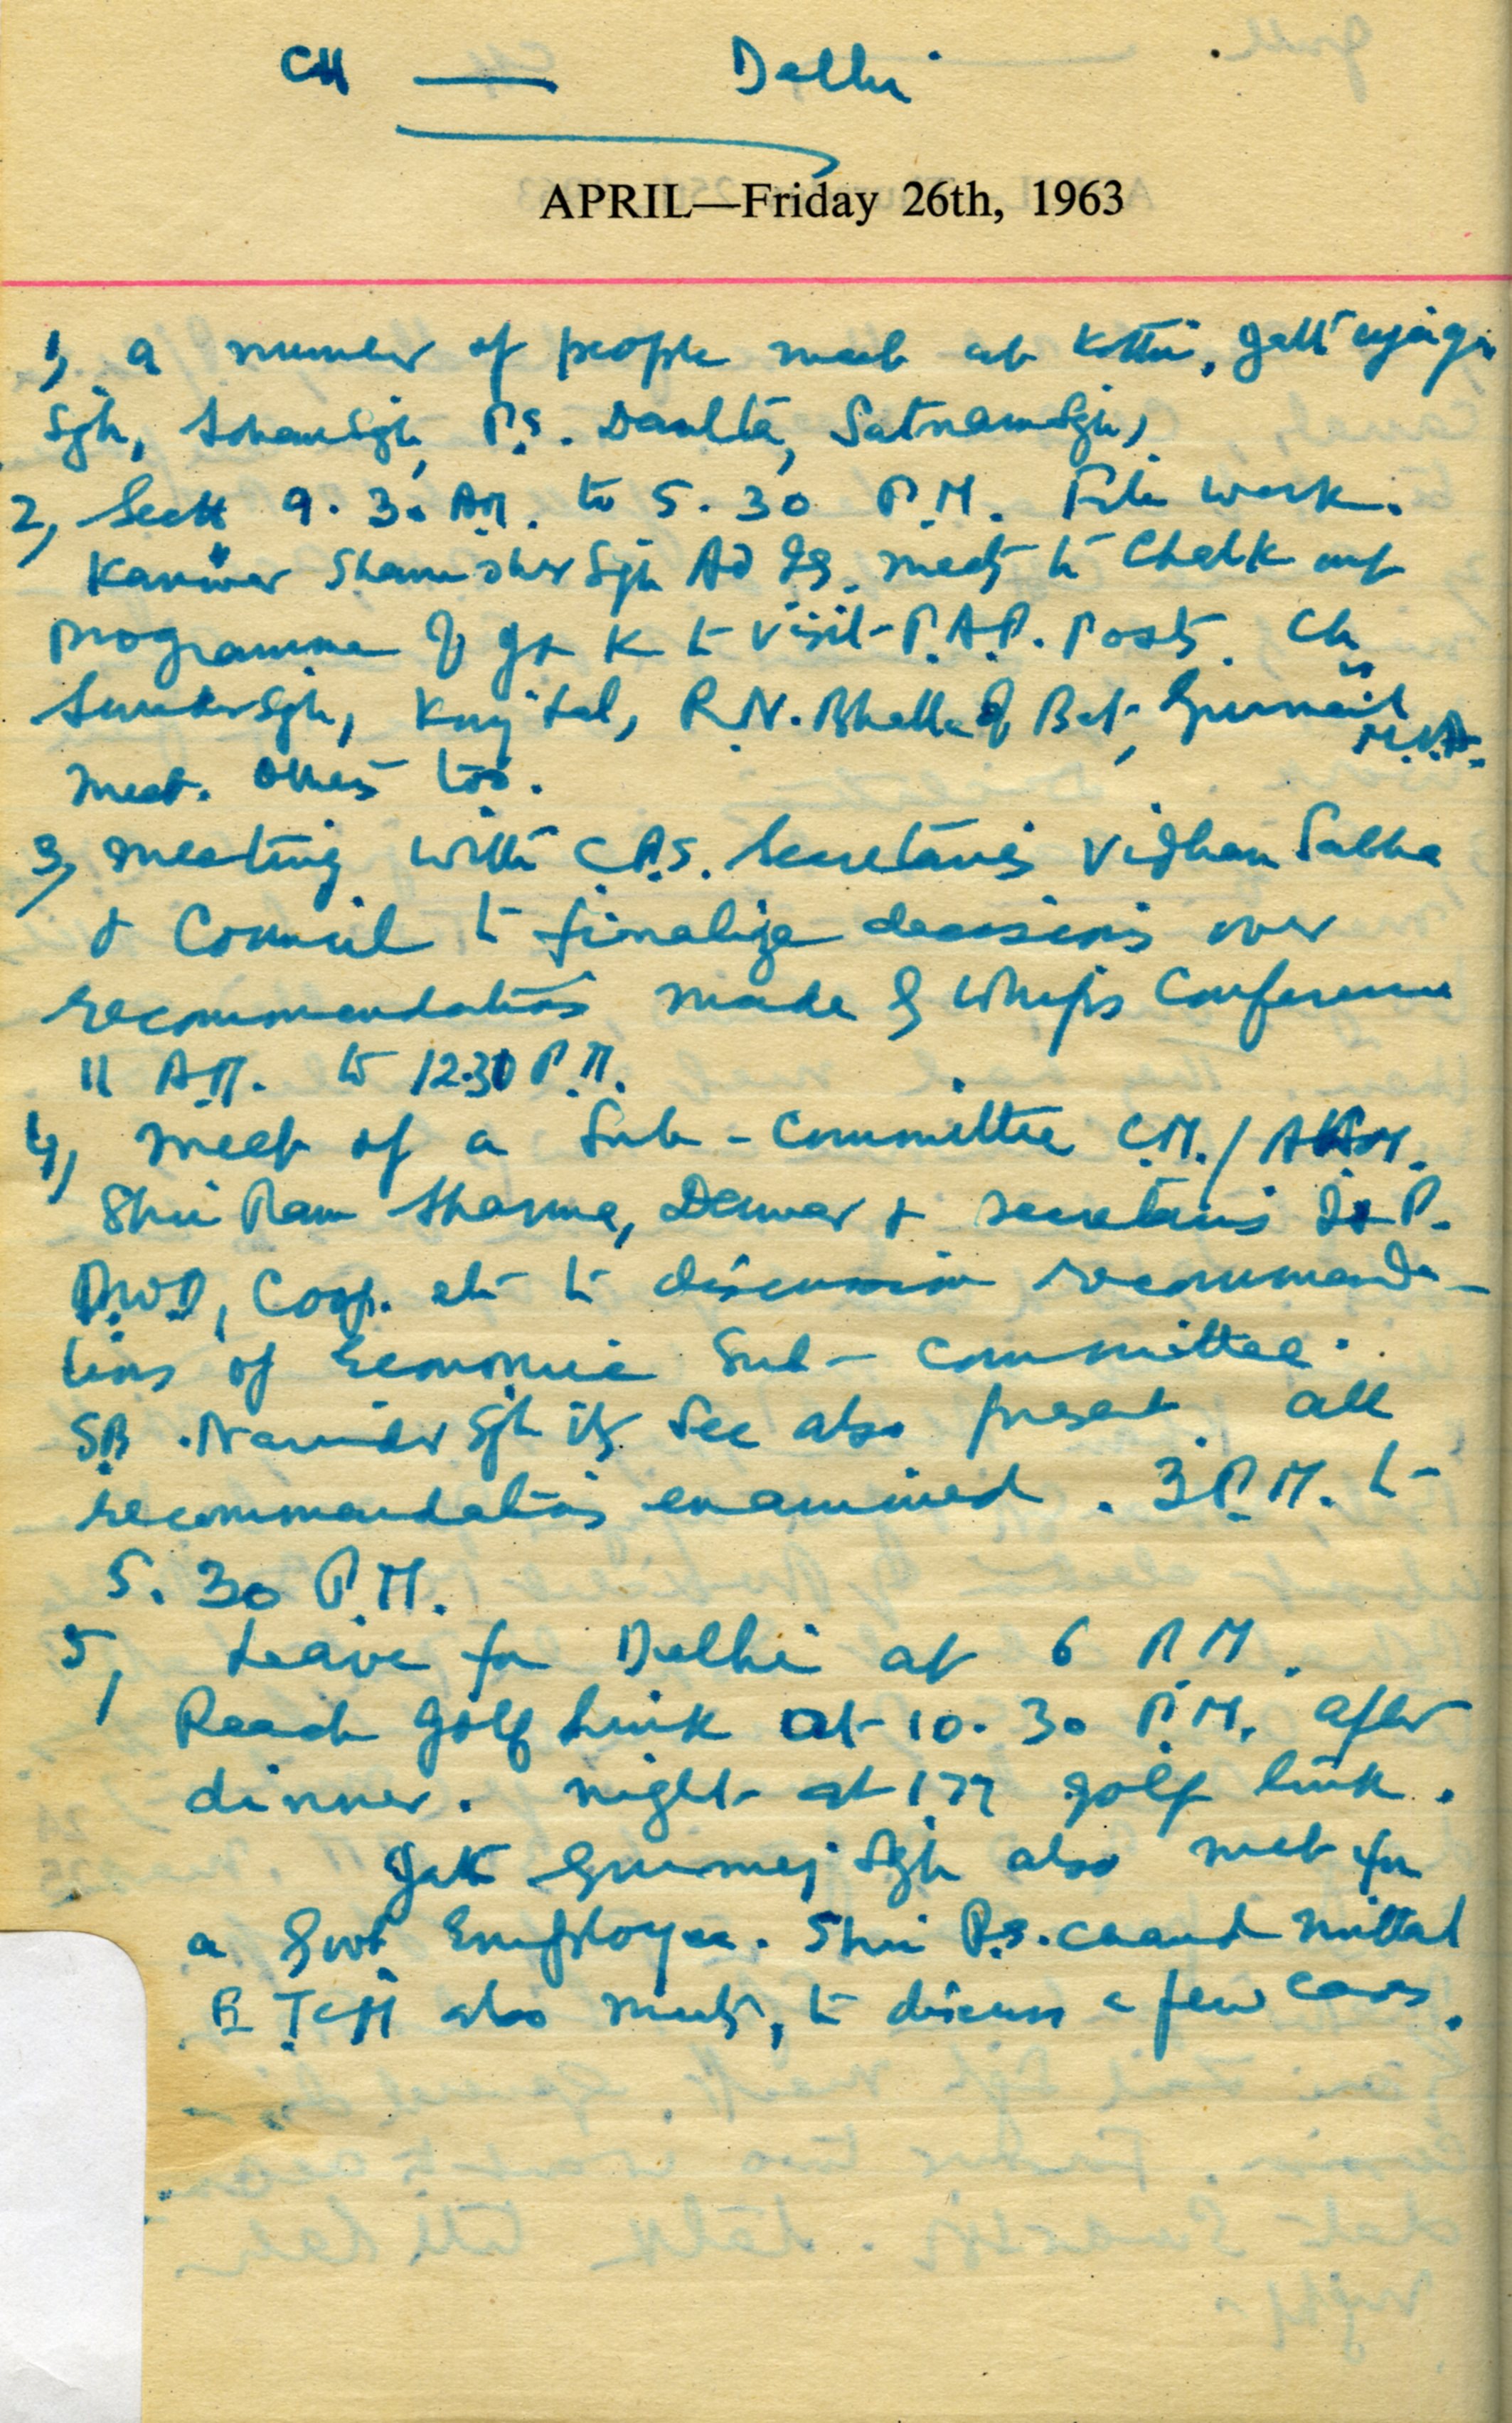 CH — Delhi
APRIL—Friday 26th, 1963
1, a number of people meet at Kothi, Jatt
Sgh, Sohan Sgh, P.S. Daulta, Satnam Sgh,
2, Sectt 9.30 A.M. to 5.30 P.M. File work.
Kanwar Shamsher Sgh Ad IG. meets to Chalk out
programme of J & K to visit P.A.P. Posts. Ch
Sunder Sgh, Lal, R.N. Bhalla of Bat, Gurmail
M.L.A.
meet. Others too.
3, meeting with C.P.S. Secretaries Vidhan Sabha
& Council to finalize decisions over
recommendations made by Whips Conference
11 A.M. to 12.30 P.M.
4, meet of a Sub-Committee C.M./
Shri Ram Sharma, & secretaries I & P.
P.W.D, Coop. etc to discussion recommenda-
tions of Economic Sub-Committee.
SB. Narinder Sgh Sec also present all
recommendations examined. 3 P.M. to
5.30 P.M.
5, Leave for Delhi at 6 P.M.
Reach Golf Link at 10.30 P.M. after
dinner. night at 177 golf link.
Jatt Gurmej Sgh also met for
a Govt Employee. Shri P.S. Chand Mittal
also meets, to discuss a few cases.